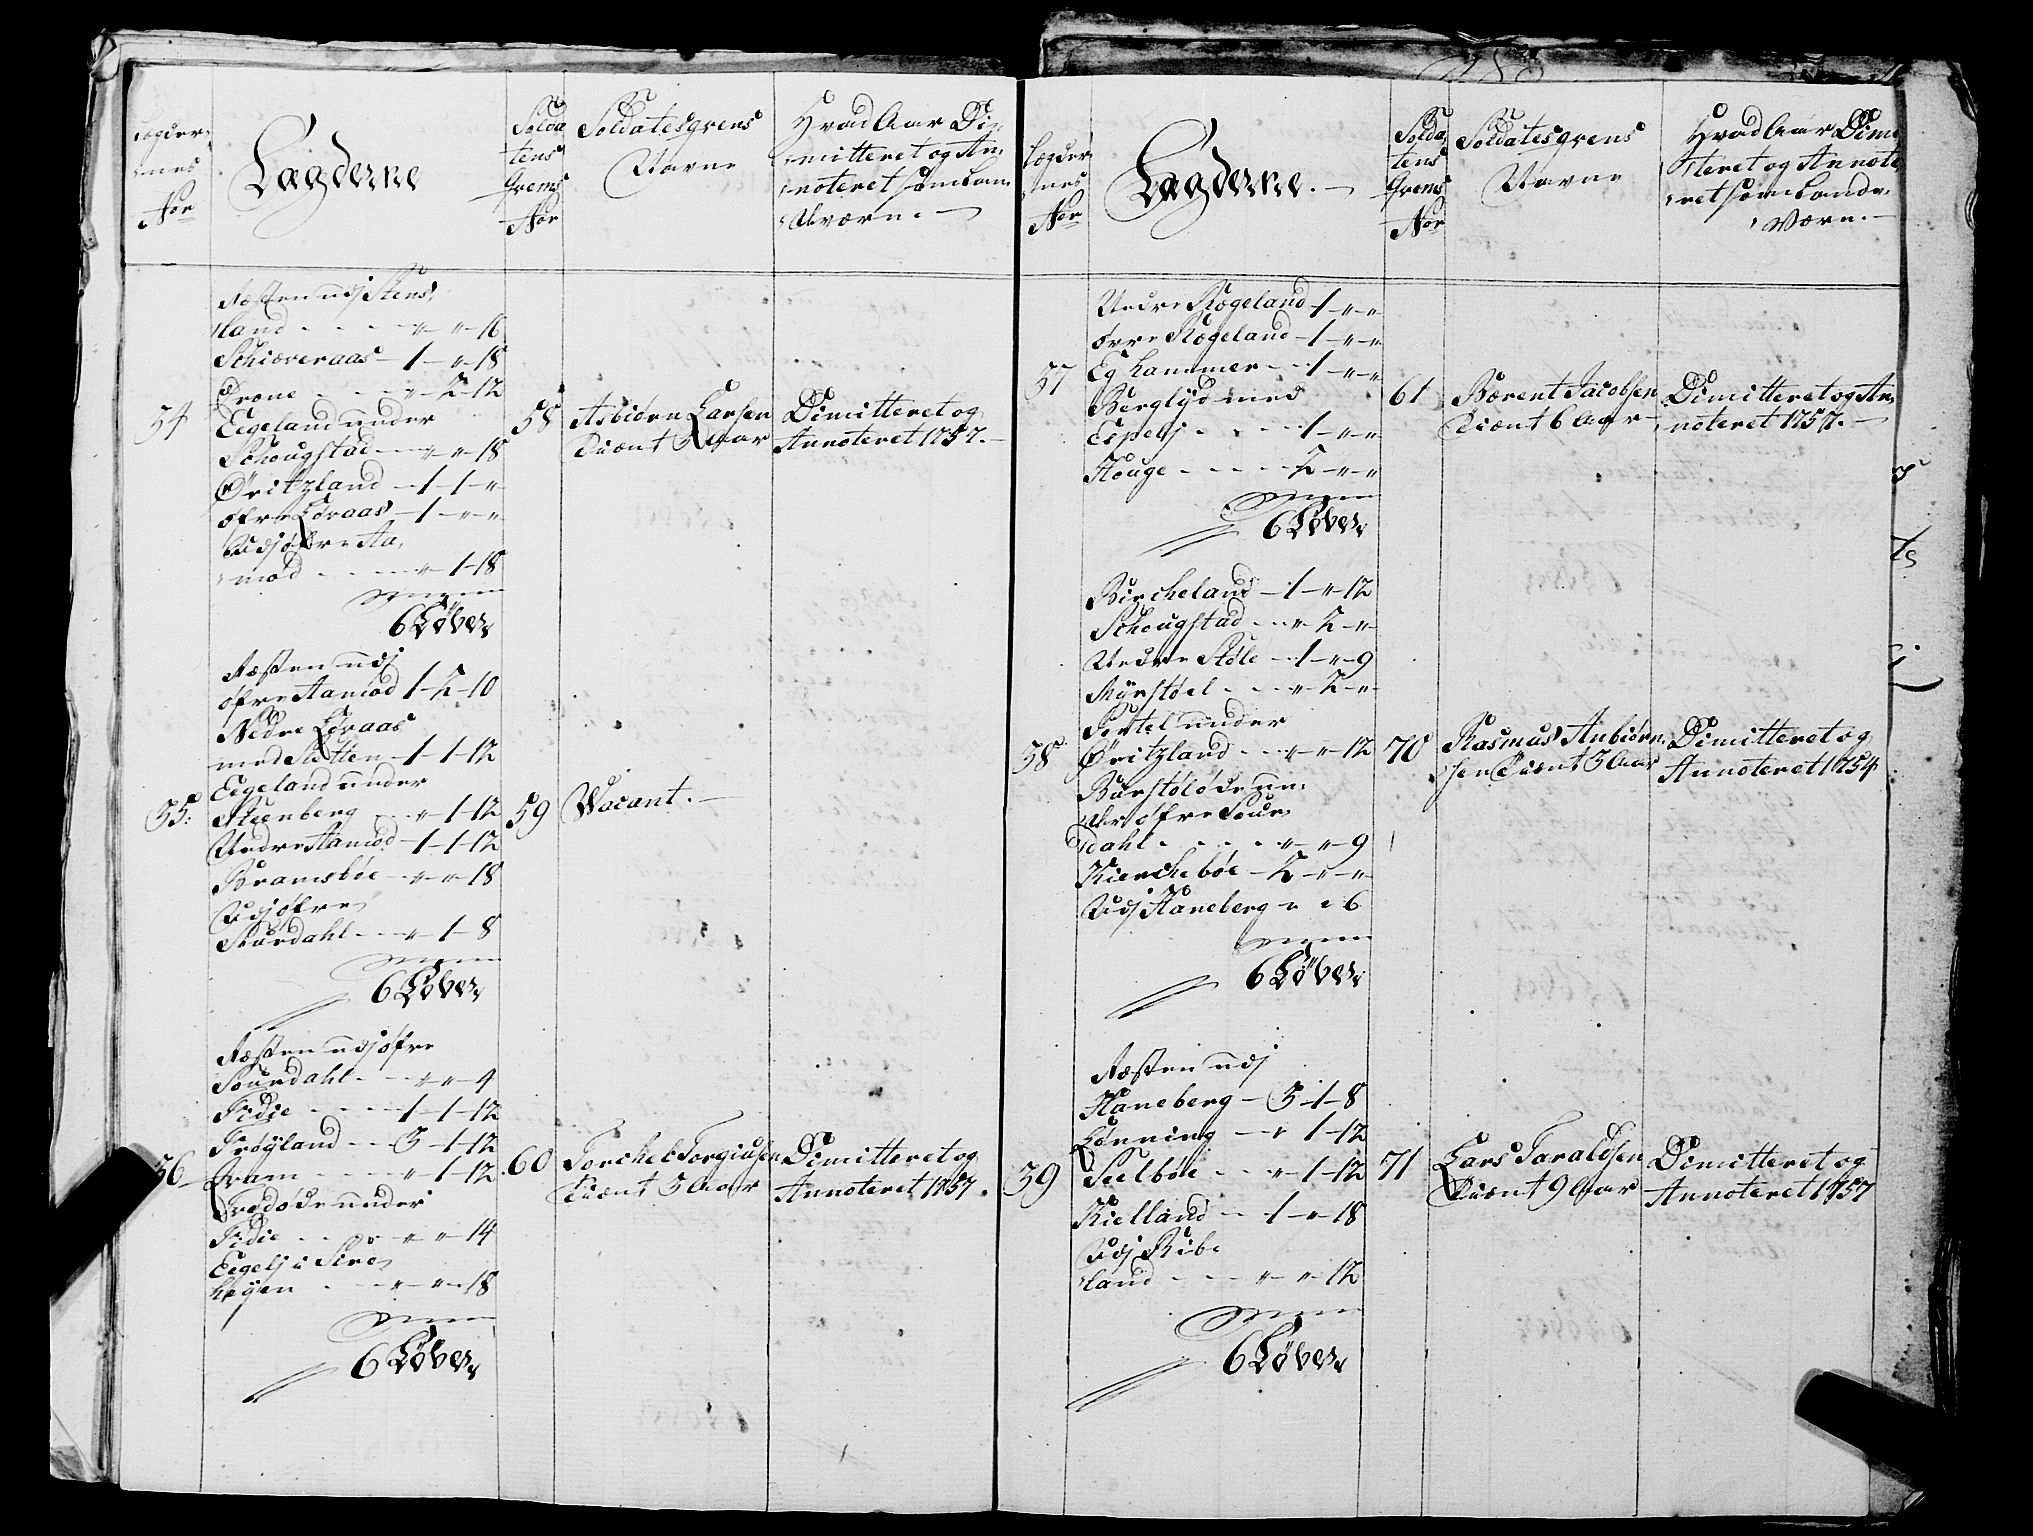 Lægder-
nes
Nor
Lægderne
Solda
tens
Grems
Nor
Soldatesgrens
Navne
Hvad Aar Di-
mitteret og An-
noteret som Lan-
dværn.
Næsten udj Stens-
land - - - " " 16
Schiæveraas - 1 - " 18
Drone - - " 2 - 12
Eegeland under
Schougstad - " " 18
Øritzland - 1 - 1 - "
øfre Løraas - 1 - " - "
Udj øfre Aa-
mod - - - " 1 - 18
6 Løver
34
58
Asbiørn Larsen
Tiænt 5 Aar
Dimitteret og
Annoteret 1757.
Næsten udj
øfre Aamod 1 - 2 - 10
Nedre Løraas
med Sletten - 1 - 1 - 12
Eegeland under
Steenberg - " 1 - 12
Nedre Aamod - 1 - 1 - 12
Bramsbøe - " " 18
Udj øfre
Sourdahl - - " 1 - 8
6 Løver
35:
59
Vacant.
Næsten udj øfre
Sourdahl - - " " 4
Fidie - - - 1 - 1 - 12
Frøyland - 3 - 1 - 12
Fram - - - " 1 - 12
Ødeøde under
Fidie - - - " " 14
Eegelj i Sire
høyen - - - " " 18
6 Løver
36
60
Torchel Torgiusen
Tiænt 5 Aar
Dimitteret og
Annoteret 1757.
Lægder
nes
Nor
Lægderne.
Solda
tens
Grems
Nor
Soldatesgrens
Navne
Hvad Aar Dimi
tteret og Annote
ret som Lande-
Værn.
Nedre Røgeland - 1 - " - "
øvre Røgeland - 1 - " - "
Eg hammer - - 1 - " - "
Berglyd med
Espelj - - - 1 - " - "
Houge - - - 2 - " - "
6 Løver
37
61
Bærent Jacobsen
Tiænt 6 Aar
Dimitteret og An-
noteret 1757.
Bircheland - 1 - " 12
Schougstad - - " 2 - "
Nedre Støle - 1 - " 9
Myrstøel - - " 2 - "
Sertel under
Øritzland - - " " 12
Burstøløde un-
der øfre Sour
dahl - - - - " " 9
Kierchebøe - 2 - " - "
Udj Haneberg " " 6
6 Løver
38
70
Rasmus Anbiørn-
sen Tiænt 3 Aar
Dimitteret og
Annoteret 1754
Næsten udj
Haneberg - 3 - 1 - 8
Lønning - " 1 - 12
Seelbøe - - " 1 - 12
Kielland - - 1 - " 18
Udj Ribe
land - - - " " 12
6 Løver
39
71
Lars Taraldsen
Tiænt 9 Aar
Dimitteret og
Annoteret 1757